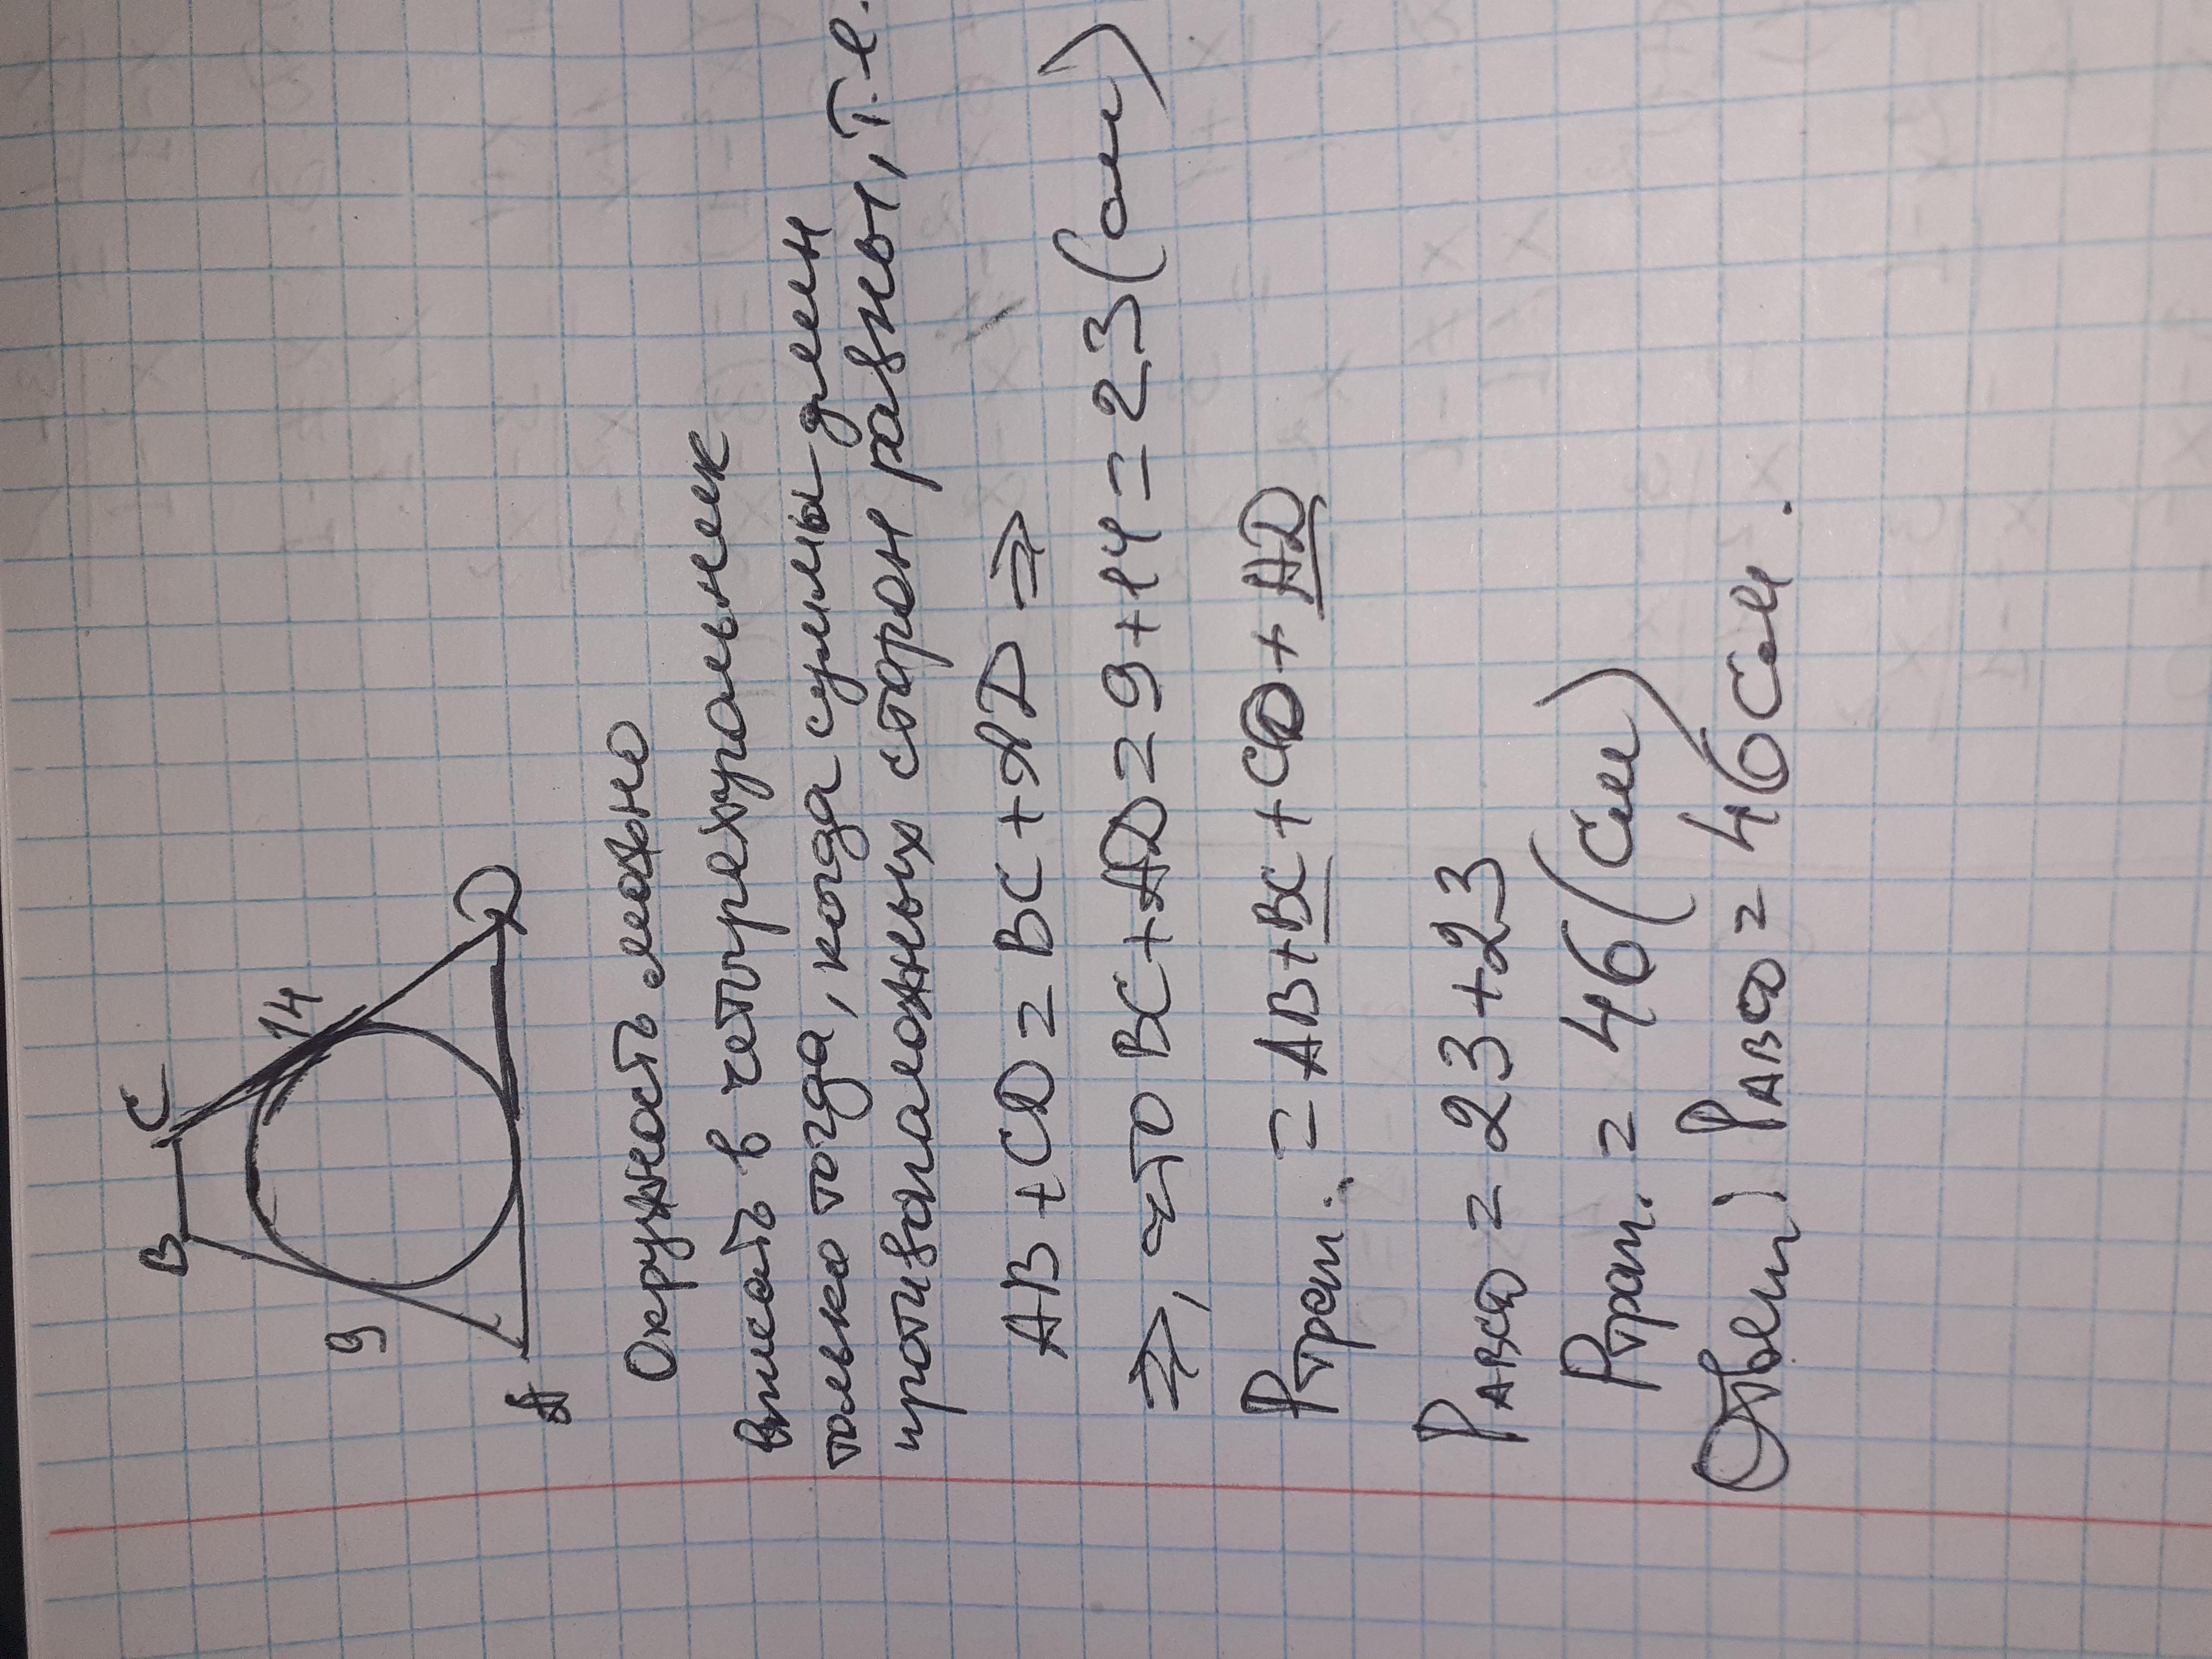 B C
9 14
A D
Окружность можно
вписать в четырехугольник
только тогда, когда суммы длин
противоположных сторон равны, т.е.
AB + CD = BC + AD ⇒
⇒, что BC + AD = 9 + 14 = 23 (см)
Pтрап. = AB + BC + CD + AD
PABCD = 23 + 23
Pтрап. = 46 (см)
Ответ: PABCD = 46 см.